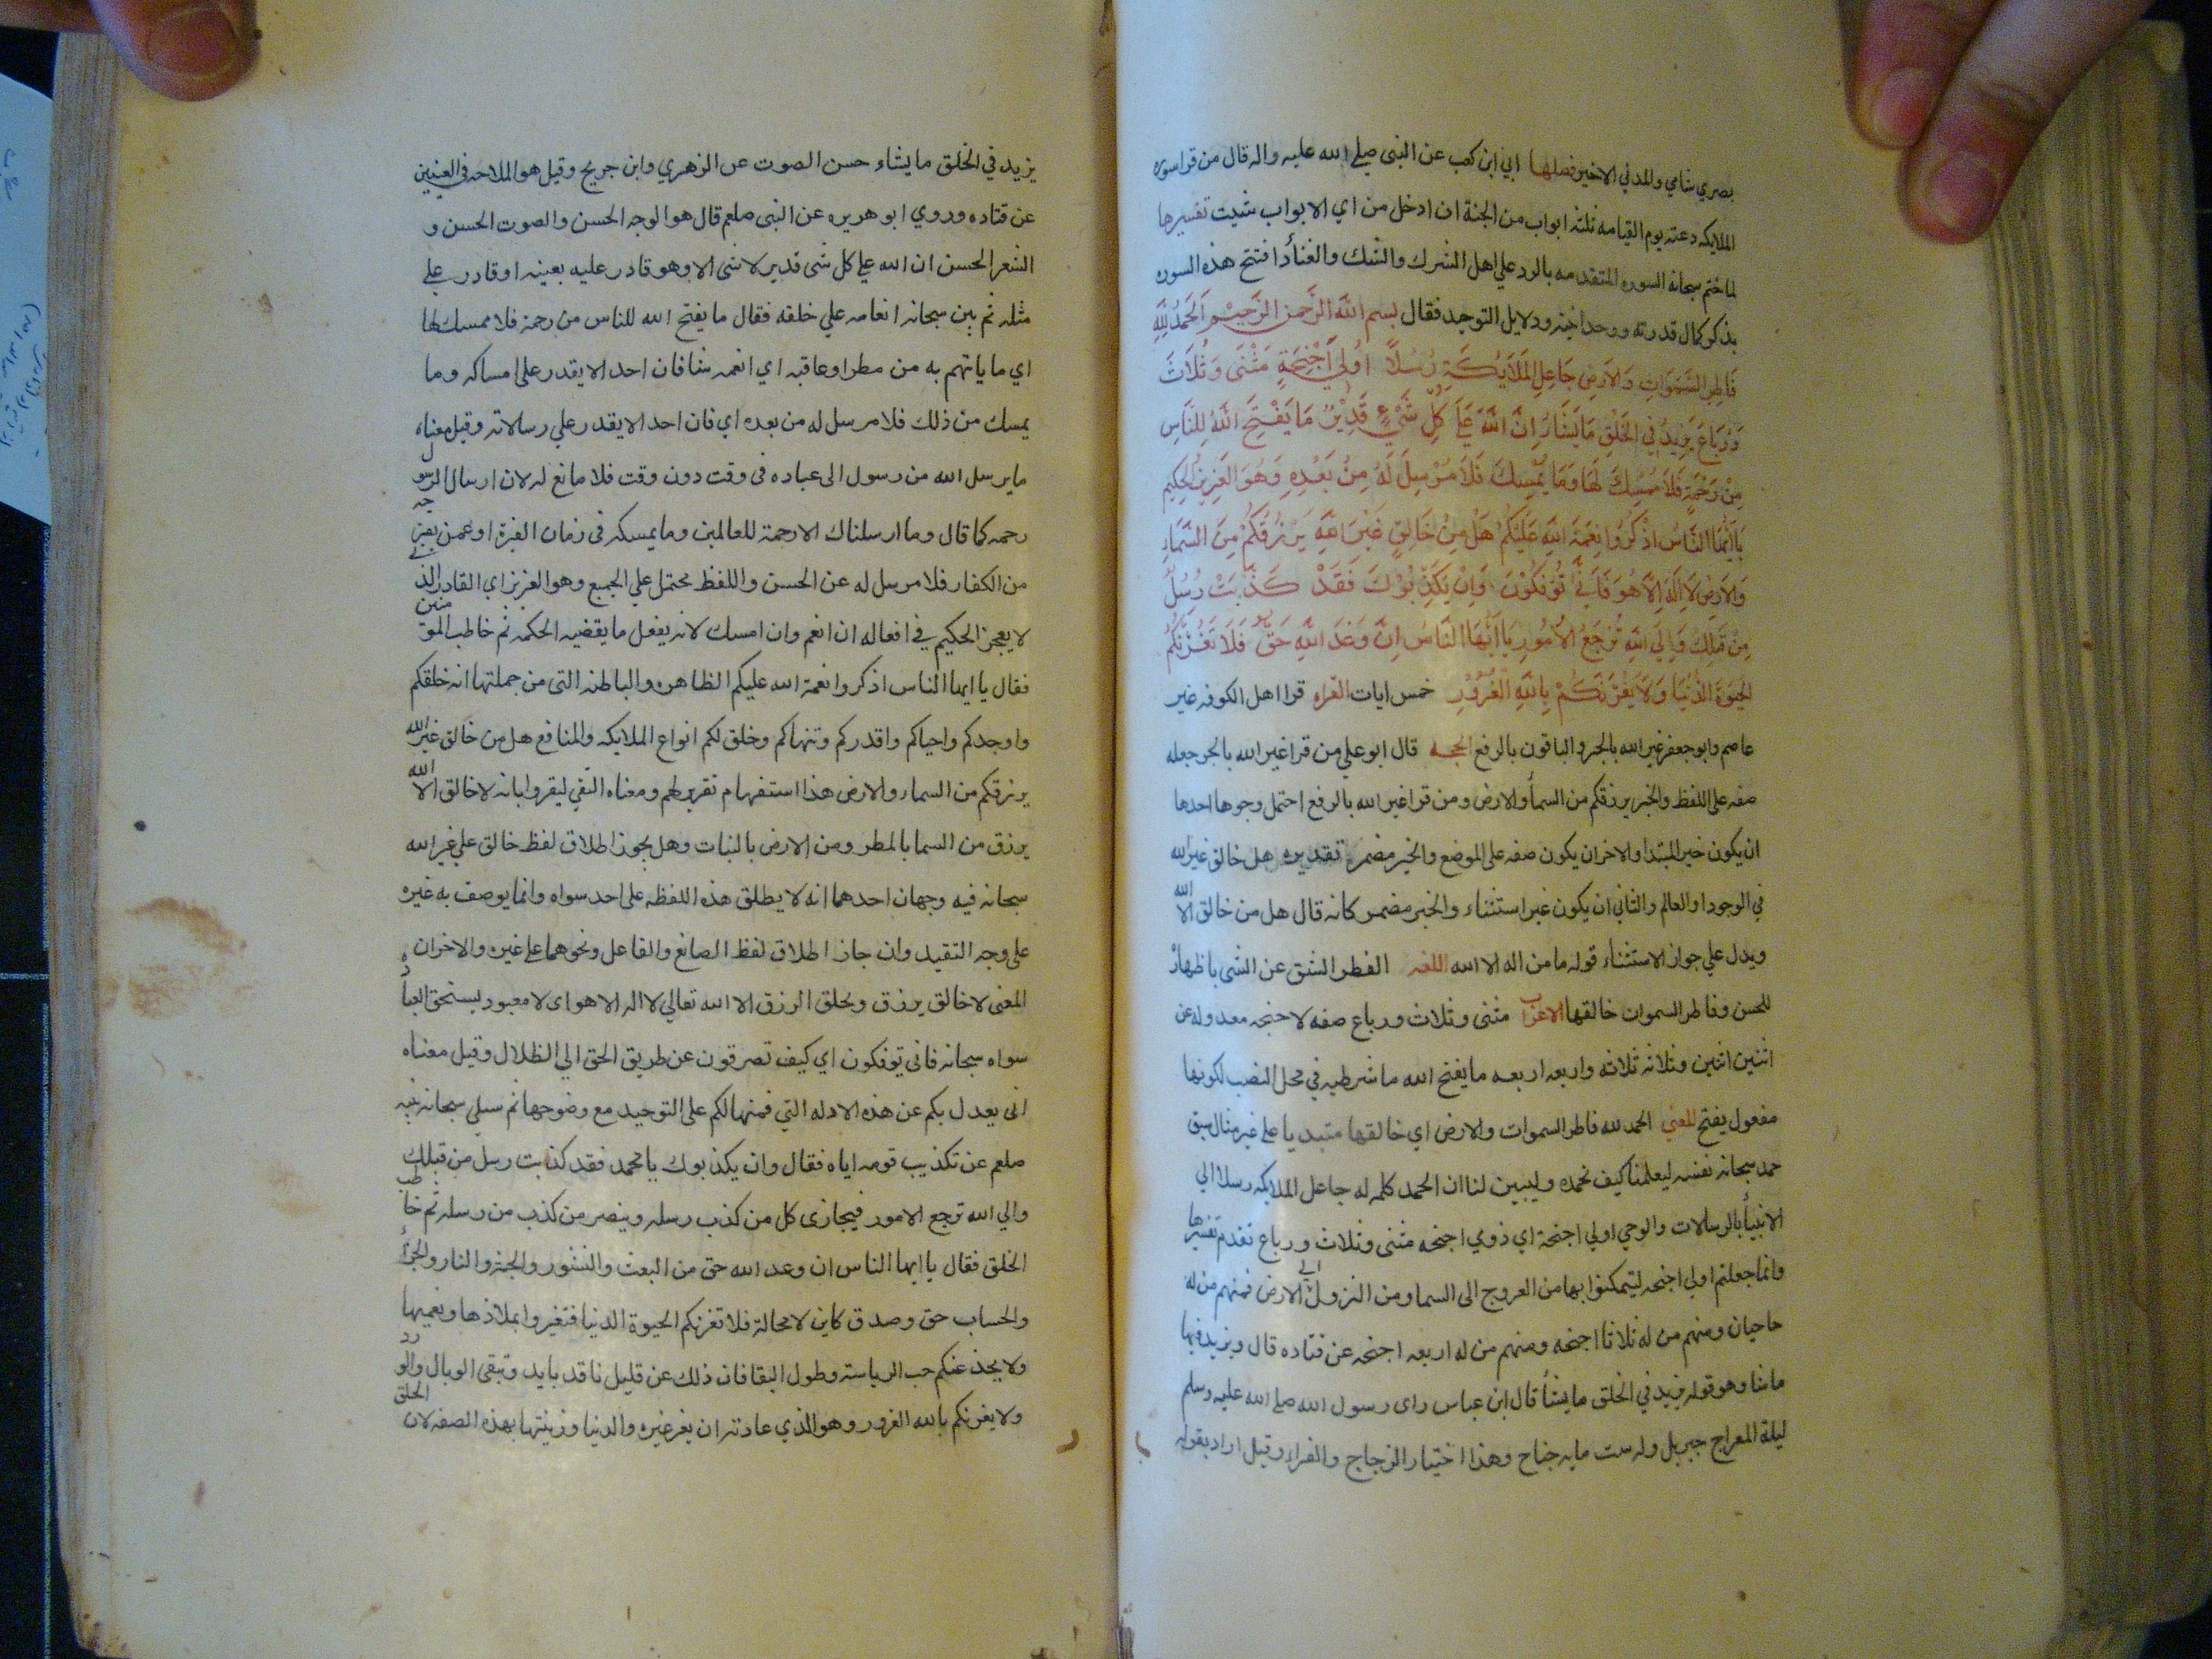 بصري شامي والمدني الاخير فضلها ابي ابن كعب عن النبي صلي الله عليه واله قال من قرا سوره
الملايكه دعته يوم القيامه ثلثة ابواب من الجنة ان ادخل من اي الابواب شيت تفسيرها
لما ختم سبحانه السوره المتقدمه بالرد علي اهل الشرك والشك والعناد افتتح هذه السوره
بذكر كمال قدرته ووحدانيته ودلايل التوحيد فقال بسم الله الرحمن الرحيم الحمد لله
فاطر السموات والارض جاعل الملايكة رسلا اولي اجنحة مثنى وثلاث
ورباع يزيد في الخلق ما يشاء ان الله علي كل شيء قدير ما يفتح الله للناس
من رحمة فلا ممسك لها وما يمسك فلا مرسل له من بعده وهو العزيز الحكيم
يا ايها الناس اذكروا نعمة الله عليكم هل من خالق غير الله يرزقكم من السماء
والارض لا اله الا هو فاني توفكون وان يكذبوك فقد كذبت رسل
من قبلك والي الله ترجع الامور يا ايها الناس ان وعد الله حق فلا تغرنكم
الحيوة الدنيا ولا يغرنكم بالله الغرور خمس ايات القراه قرا اهل الكوفه غير
عاصم وابو جعفر غير الله بالجر والباقون بالرفع الحجه قال ابو علي من قرا غير الله بالجر جعله
صفه علي اللفظ والخبر يرزقكم من السمأ والارض ومن قرا غير الله بالرفع احتمل وجوها احدها
ان يكون خبر المبتدا والاخر ان يكون صفه علي الموضع والخبر مضمر تقديره هل خالق غير الله
في الوجود او العالم والثاني ان يكون غير استثناء والخبر مضمر كانه قال هل من خالق الا الله
ويدل علي جواز الاستثناء قوله ما من اله الا الله اللغه الفطر الشق عن الشي باظهاره
للحسن وفاطر السموات خالقها الاعراب مثنى وثلاث ورباع صفه لاجنحه معدوله عن
اثنين اثنين وثلاثه ثلاثه واربعه اربعه ما يفتح الله ما شرطيه في محل النصب لكونها
مفعول يفتح المعني الحمد لله فاطر السموات والارض اي خالقها مبتديا علي غير مثال سبق
حمد سبحانه نفسه ليعلمنا كيف نحمده وليبين لنا ان الحمد كلمه له جاعل الملايكه رسلا الي
الانبيأ بالرسالات والوحي اولي اجنحة اي ذوي اجنحه مثنى وثلاث ورباع تقدم تفسيرها
وانما جعلهم اولي اجنحه ليتمكنوا بها من العروج الى السما ومن النزول الي الارض فمنهم من له
جناحان ومنهم من له ثلاثا اجنحه ومنهم من له اربعه اجنحه عن قتاده قال ويزيد فيها
ما شا وهو قوله يزيد في الخلق ما يشأ قال ابن عباس راى رسول الله صلي الله عليه وسلم
ليلة المعراج جبريل وله ست مايه جناح وهذا اختيار الزجاج والفراء وقيل اراد بقوله
يزيد في الخلق ما يشاء حسن الصوت عن الزهري وابن جريج وقيل هو الملاحه في العينين
عن قتاده وروي ابو هريره عن النبي صلعم قال هو الوجه الحسن والصوت الحسن و
الشعر الحسن ان الله علي كل شي قدير لا شي الا وهو قادر عليه بعينه او قادر علي
مثله ثم بين سبحانه انعامه علي خلقه فقال ما يفتح الله للناس من رحمة فلا ممسك لها
اي ما ياتهم به من مطر او عاقبه اي انعمه شا فان احد الا يقدر علي امساكه وما
يمسك من ذلك فلا مرسل له من بعده اي فان احد الا يقدر علي رسالاته وقيل معناه
ما يرسل الله من رسول الى عباده في وقت دون وقت فلا مانع له لان ارسال الرسول
رحمه كما قال وما ارسلناك الا رحمة للعالمين وما يمسكه في زمان الفترة او عمن
من الكفار فلا مرسل له عن الحسن واللفظ محتمل علي الجميع وهو العزيز اي القادر الذي
لا يعجز الحكيم في افعاله ان انعم وان امسك لانه يفعل ما يقضيه الحكمه ثم خاطب المومنين
فقال يا ايها الناس اذكروا نعمة الله عليكم الظاهره والباطنه التي من جملتها انه خلقكم
واوجدكم واحياكم واقدركم وخلق لكم انواع الملايكه والمنافع هل من خالق غير الله
يرزقكم من السماء والارض هذا استفهام تقرير لهم ومعناه النفي ليقروا بانه لا خالق الا الله
يرزق من السما بالمطر ومن الارض بالنبات وهل يجوز اطلاق لفظ خالق علي غير الله
سبحانه فيه وجهان احدهما انه لا يطلق هذه اللفظه علي احد سواه وانما يوصف به غيره
علي وجه التقييد وان جاز اطلاق لفظ الصانع والفاعل ونحوهما علي غيره والاخر ان
المعنى لا خالق يرزق ويخلق الرزق الا الله تعالي لا اله الا هو اي لا معبود يستحق العباده
سواه سبحانه فاني توفكون اي كيف تصرفون عن طريق الحق الي الظلال وقيل معناه
اني يعدل بكم عن هذه الادله التي فمنها لكم علي التوحيد مع وضوحها ثم سلي سبحانه نبيه
صلعم عن تكذيب قومه اياه فقال وان يكذبوك يا محمد فقد كذبت رسل من قبلك
والي الله ترجع الامور فيجازى كل من كذب رسله وينصر من كذب من رسله ثم خاطب
الخلق فقال يا ايها الناس ان وعد الله حق من البعث والنشور والجنة والنار والجزأ
والحساب حق وصدق كاين لا محالة فلا تغرنكم الحيوة الدنيا فتغيروا بملاذها ونعيمها
ولا يخدعنكم حب الرياسة وطول البقا فان ذلك عن قليل نافد بايد وتبقى الوبال والوزر
ولا يغرنكم بالله الغرور وهو الذي عادته ان يغر غيره والدنيا وزينتها بهذه الصفه لان الخلق